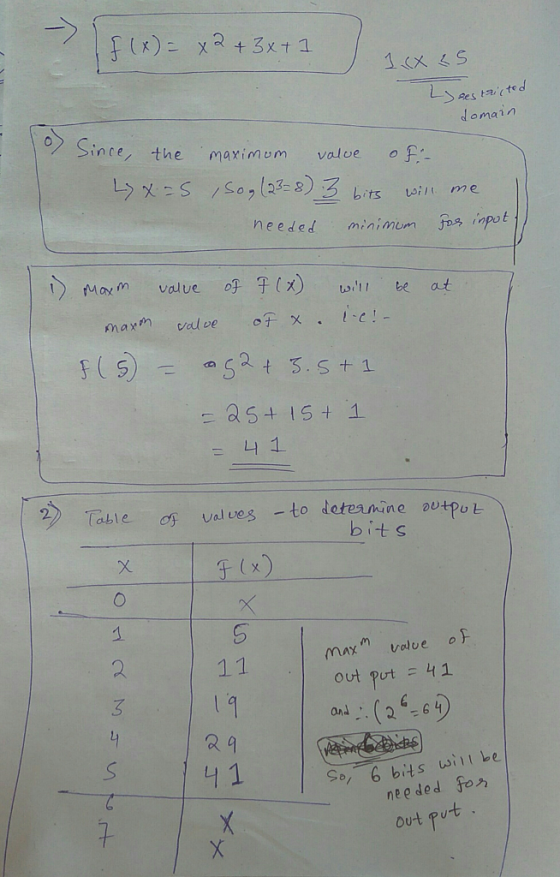 → f(x) = x² + 3x + 1
1 ≤ x ≤ 5
↳ restricted
domain
0) Since, the maximum value of:-
↳ x = 5, So, (2³=8) 3 bits will me
needed minimum for input
1) Maxm value of f(x) will be at
maxm value of x. i.e:-
f(5) = 5² + 3.5 + 1
= 25 + 15 + 1
= 41
2) Table of values - to determine output
bits
x f(x)
0 X
1 5
2 11
3 19
4 29
5 41
6 X
7 X
maxm value of
output = 41
and ∴ (2⁶=64)
So, 6 bits will be
needed for
output.